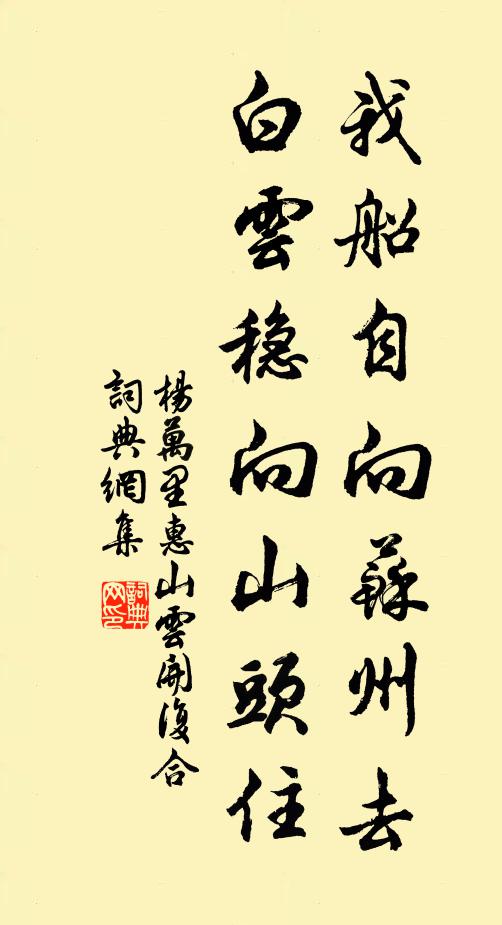 我船自向蘇州去
白雲穏向山頭住
楊萬里惠山雲開復合
詞典網集
詞典网印